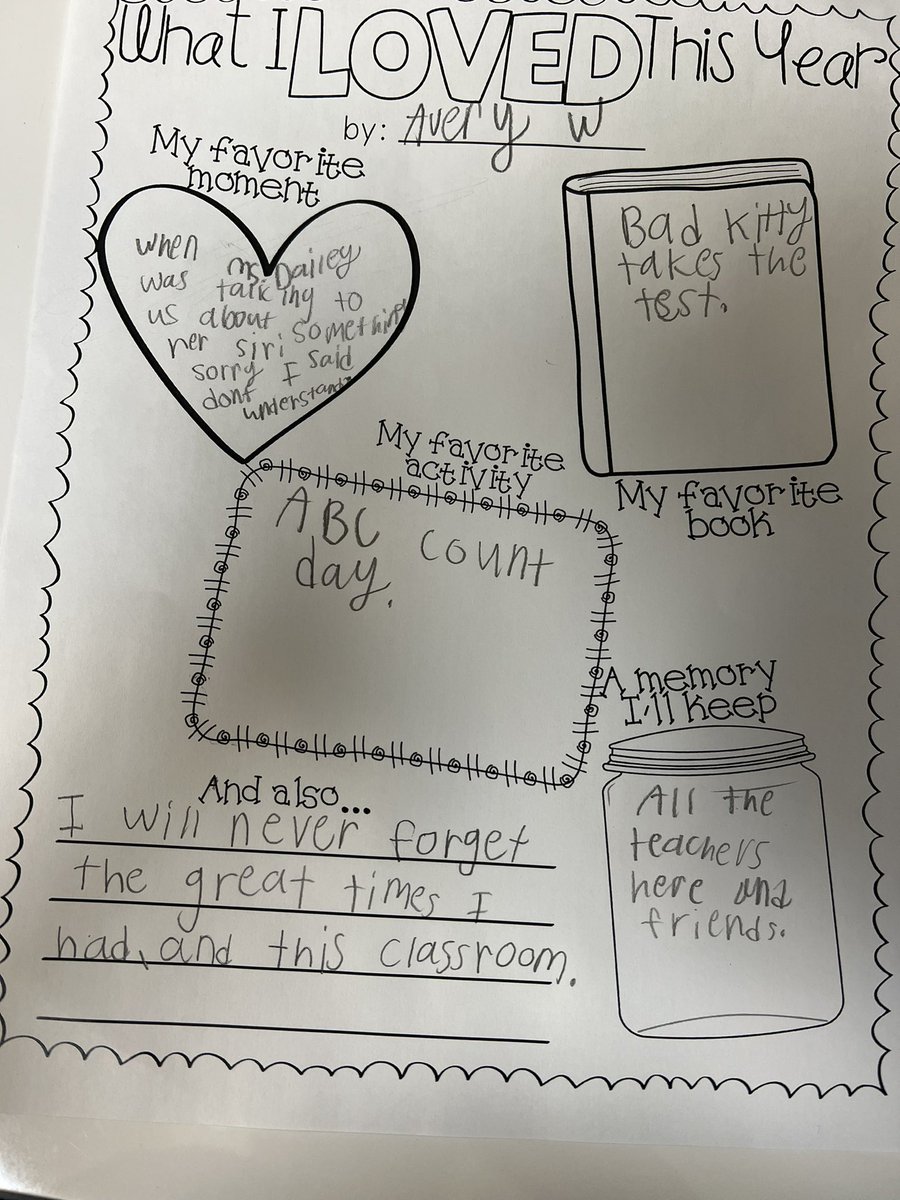 What I LOVED This Year
by: Avery W
My favorite
moment
when ms Dailey
was talking to
us about something
her siri said
sorry I
dont understand
Bad Kitty
takes the
test.
My favorite
book
My favorite
activity
ABC count
day.
A memory
I'll keep
All the
teachers
here and
friends.
And also...
I will never forget
the great times I
had, and this classroom.